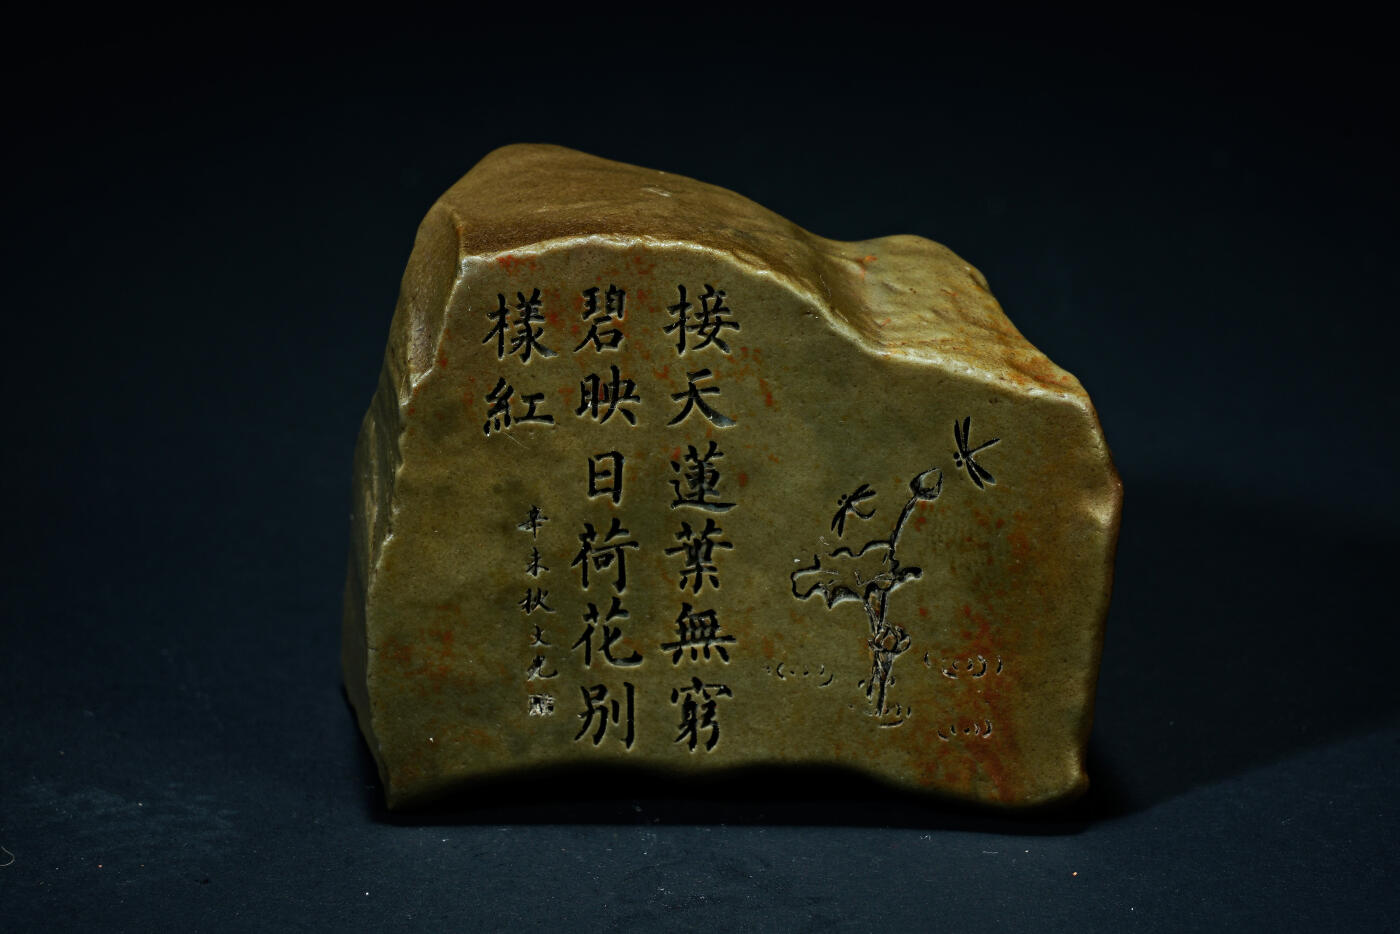 接天蓮葉無窮
碧映日荷花别
樣紅
辛未秋文光